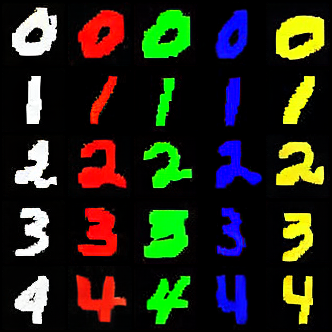 0 0 0 0 0
1 1 1 1 1
2 2 2 2 2
3 3 3 3 3
4 4 4 4 4